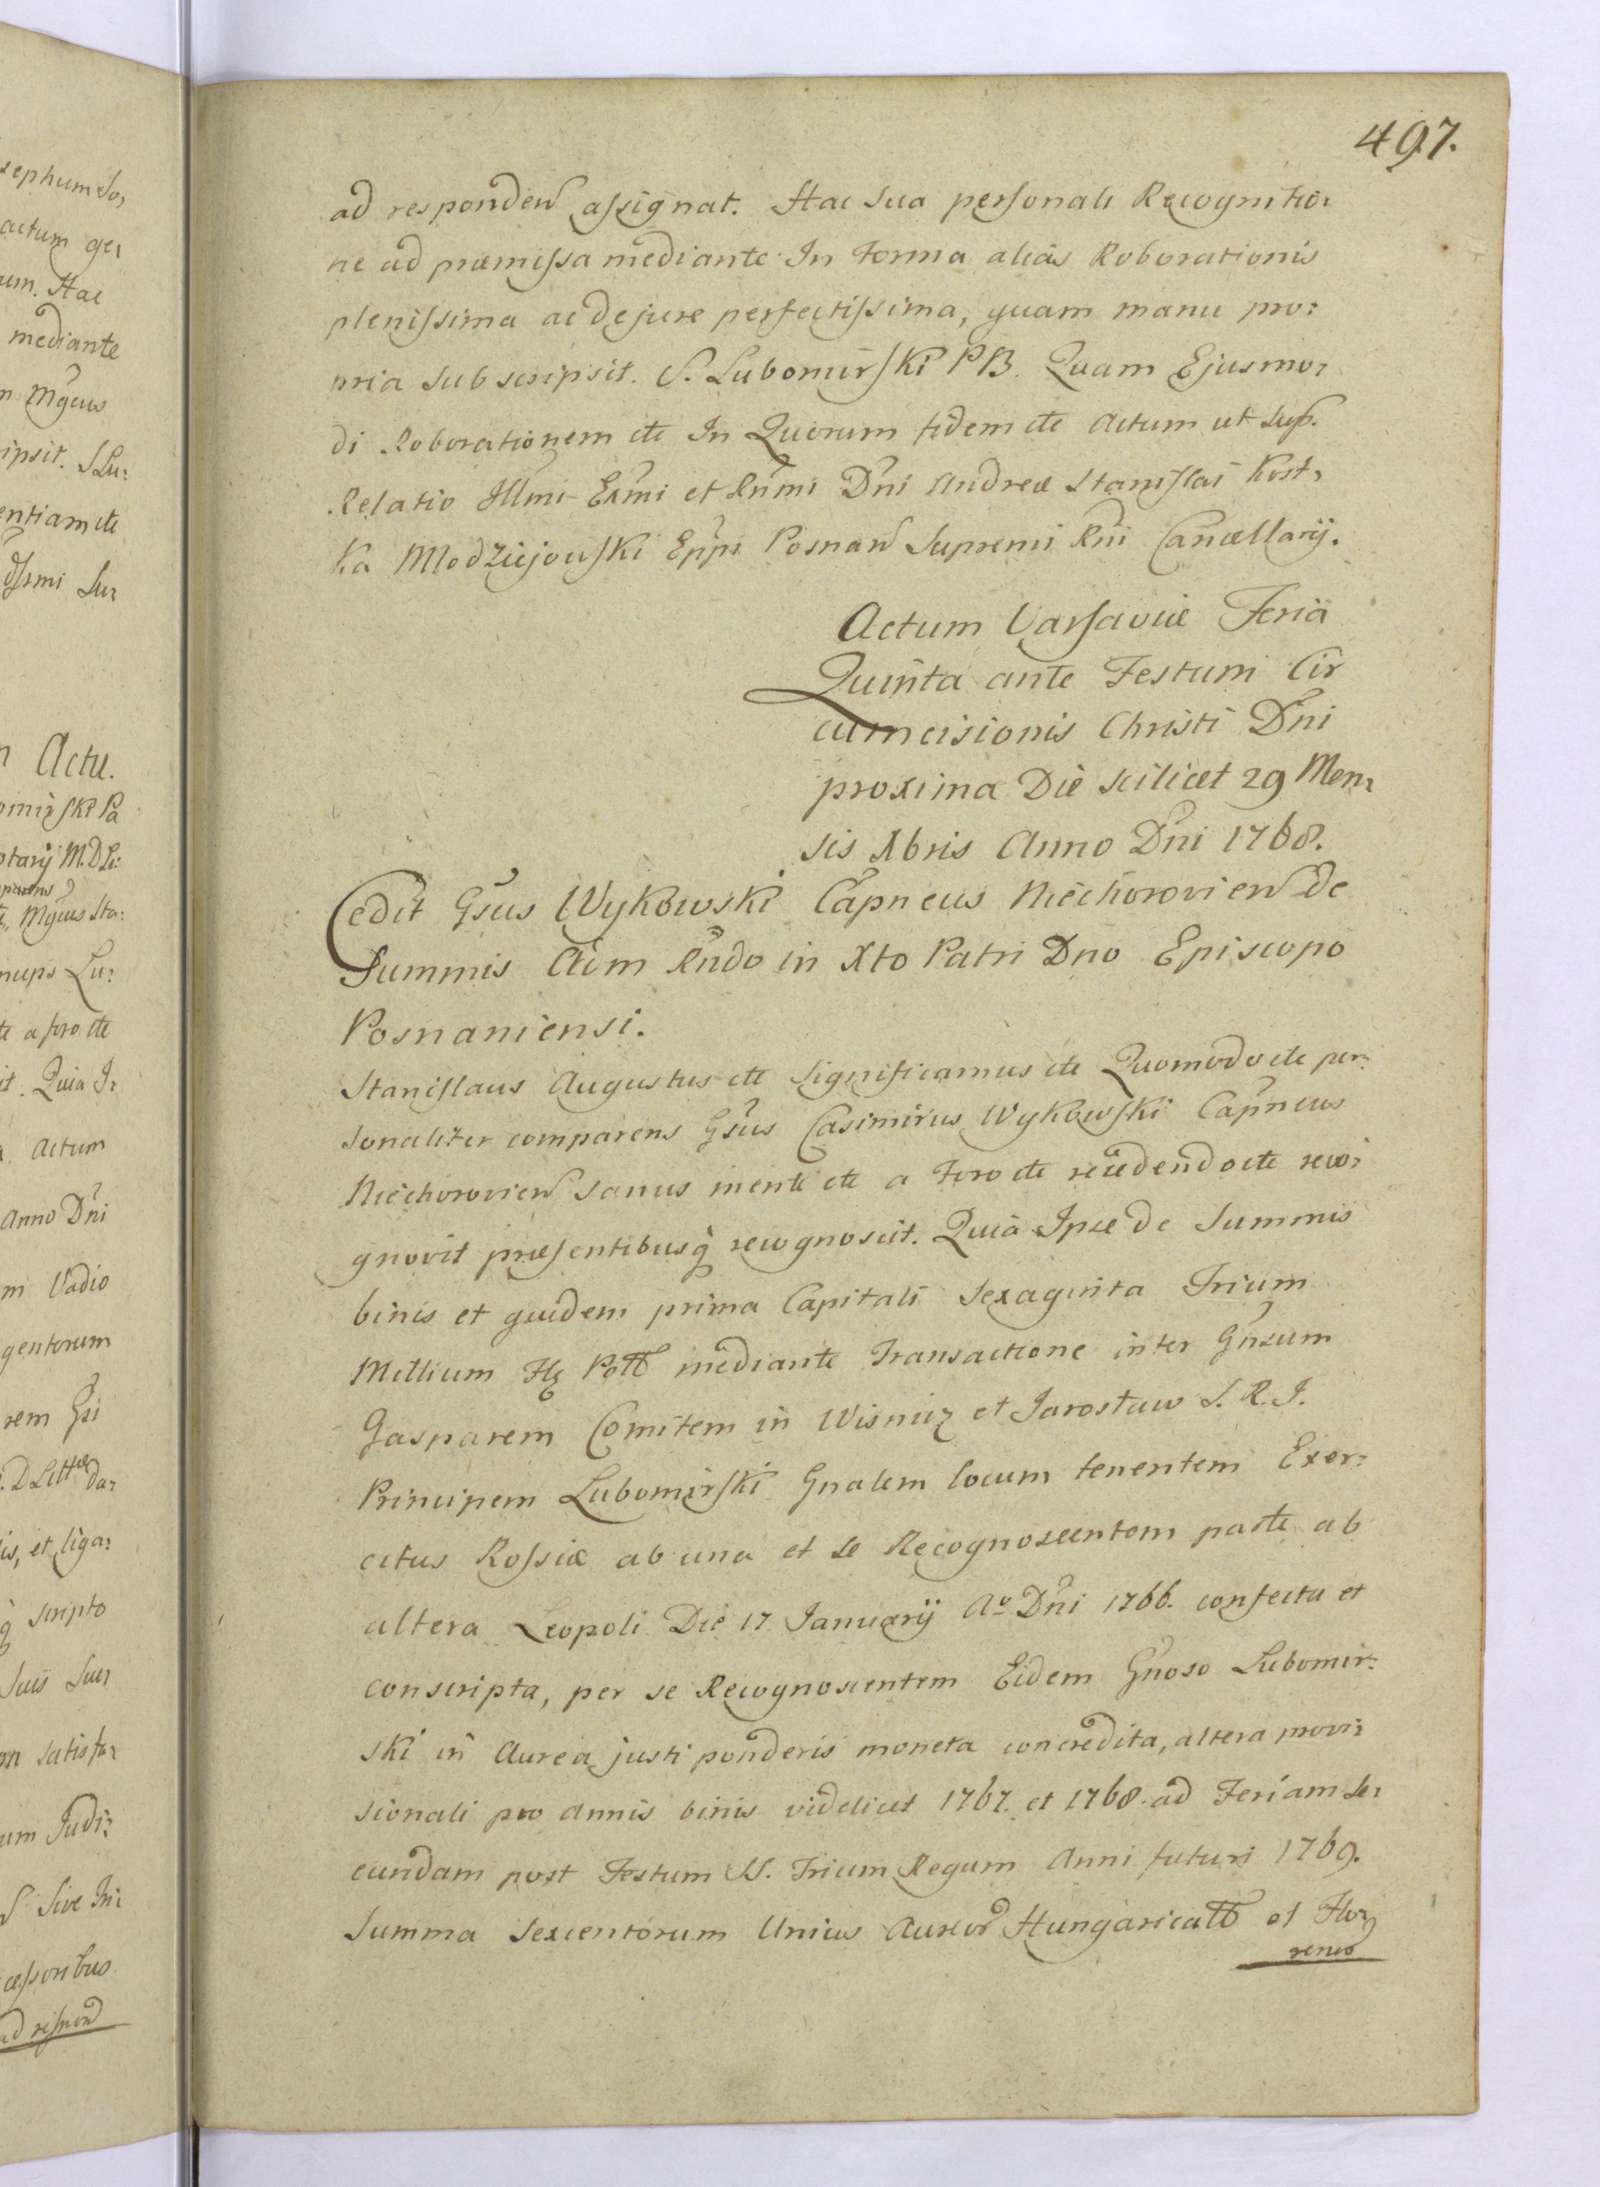 497.
ad responden assignat. Hac sua personali Recognitio:
ne ad præmissa mediante In Forma alias Roborationis
plenissima ac de jure perfectissima, quam manu pro:
pria subscripsit. S. Lubomirski PB. Quam Ejusmo:
di Roborationem etc In Quorum fidem etc Actum ut sup.
Relatio Illmi Exmi et Rnmi Dni Andreæ Stanislai Kost:
ka Modziejowski Eppi Posnan Supremi Rni Cancellarij.
Actum Varsaviæ Feria
Quinta ante Festum Cir
cumcisionis Christi Dni
proxima Die scilicet 29 Men:
sis Xbris Anno Dni 1768.
Cedit Gsus Wykowski Capneus Niechorovien De
Summis Adm Rndo in Xto Patri Dno Episcopo
Posnaniensi.
Stanislaus Augustus etc Significamus etc Quomodo etc per:
sonaliter comparens Gsus Casimirus Wykowski Capneus
Niechorovien sanus mente etc a Foro etc recedendo etc reco:
gnovit præsentibusq recognoscit. Quia Ipse de Summis
binis et quidem prima Capitali Sexaginta Trium
Millium Fl Poll mediante Transactione inter Gnsum
Gasparem Comitem in Wisnicz et Jarosław S. R. I.
Principem Lubomirski Gnalem locum tenentem Exer:
citus Rossiæ ab una et se Recognoscentem parte ab
altera Leopoli Die 17 Januarij Ao Dni 1766. confecta et
conscripta, per se Recognoscentem Eidem Gnoso Lubomir:
ski in Aurea justi ponderis moneta concredita, altera provi:
sionali pro annis binis videlicet 1767. et 1768. ad Feriam se:
cundam post Festum SS. Trium Regum Anni futuri 1769.
Summa Sexcentorum Unius Aureor Hungaricall et Flo:
renor